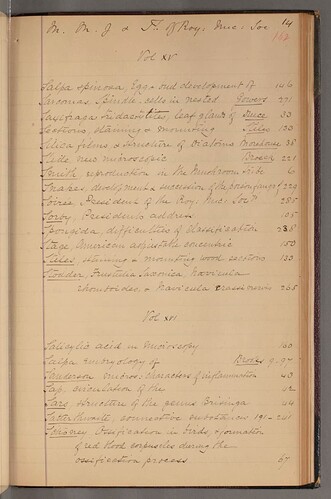 M. M. J & Tr. R Roy. Mic. Soc 14
162
Vol XV
Salpa spinosa, Egg & and development of 146
Sarcomas, Spindle-cells in nested Gowers 271
Saxifraga tridactylites, leaf glands of Druce 33
Sections, staining & mounting Stiles 133
Silica films & structure of Diatoms Morehouse 38
Slide, new microscopic Broeck 221
Smith reproduction in the Mushroom tribe 6
Snakes, development & succession of the poison fangs of 229
Soirée President of the Roy. Mic. Socy 285
Sorby, Presidents address 105
Spongida, difficulties of classification 238
Stage, American adjustable concentric 153
Stiles, staining & mounting wood sections 133
Stodder, Frustulia Saxonica, Navicula
rhomboides, & Navicula crassinervis 265
Vol XVI
Salicylic acid in microscopy 160
Salpa embryology of Brooks 9-97
Sanderson, micros. characters of inflammation 43
Sap, circulation of the 42
Sars, structure of the genus Brisinga 44
Satterthwaite, connective substances 191-241
Ossification in birds, & formation
of red blood corpuscles during the
ossification process 67